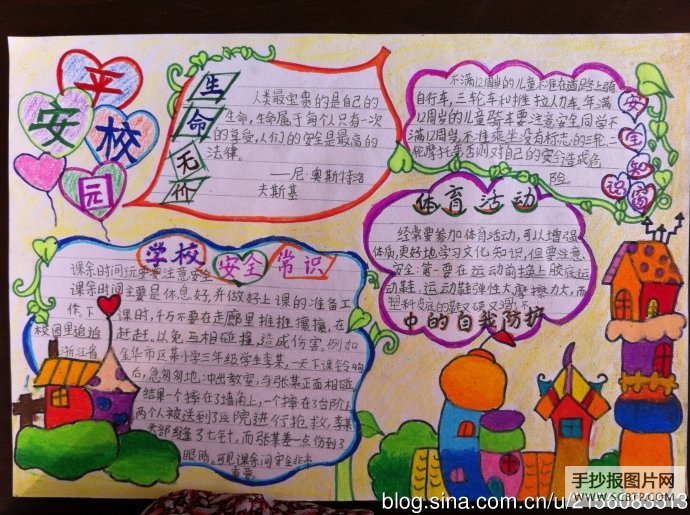 平安校园
生命无价
人类最宝贵的是自己的
生命,生命属于每个人只有一次
的享受,人们的安全是最高的
法律。
——尼·奥斯特洛
夫斯基
安全知识窗
不满12周岁的儿童不准在道路上骑
自行车,三轮车和推拉人力车,年满
12周岁的儿童骑车要注意安全同学不
满12周岁,不准乘坐没有标志的三轮,二
轮摩托车否则对自己的安全造成危
险。
体育活动
经常要参加体育活动,可以增强
体质,更好地学习文化知识,但要注意
安全第一要在运动前换上胶底运
动鞋,运动鞋弹性大摩擦力大,而
塑料皮底的鞋又硬又滑
中的自我防护
学校安全常识
课余时间玩耍要注意安全
课余时间主要是休息好,并做好上课的准备工
作,下课时,千万不要在走廊里推推攘攘,在
校园里追追赶赶。以免互相碰撞,造成伤害,例如
浙江省金华市区某小学三年级学生李某,一天下课铃响
后,急匆匆地冲出教室,与张某正面相碰
结果一个摔在了墙角上,一个摔在了台阶上
两个人被送到了医院进行抢救,李某
头部缝了七针,而张某差一点伤到了
眼睛,可见课余间安全非常
重要。
手抄报图片网
WWW.SCBTP.COM
blog.sina.com.cn/u/2156083313